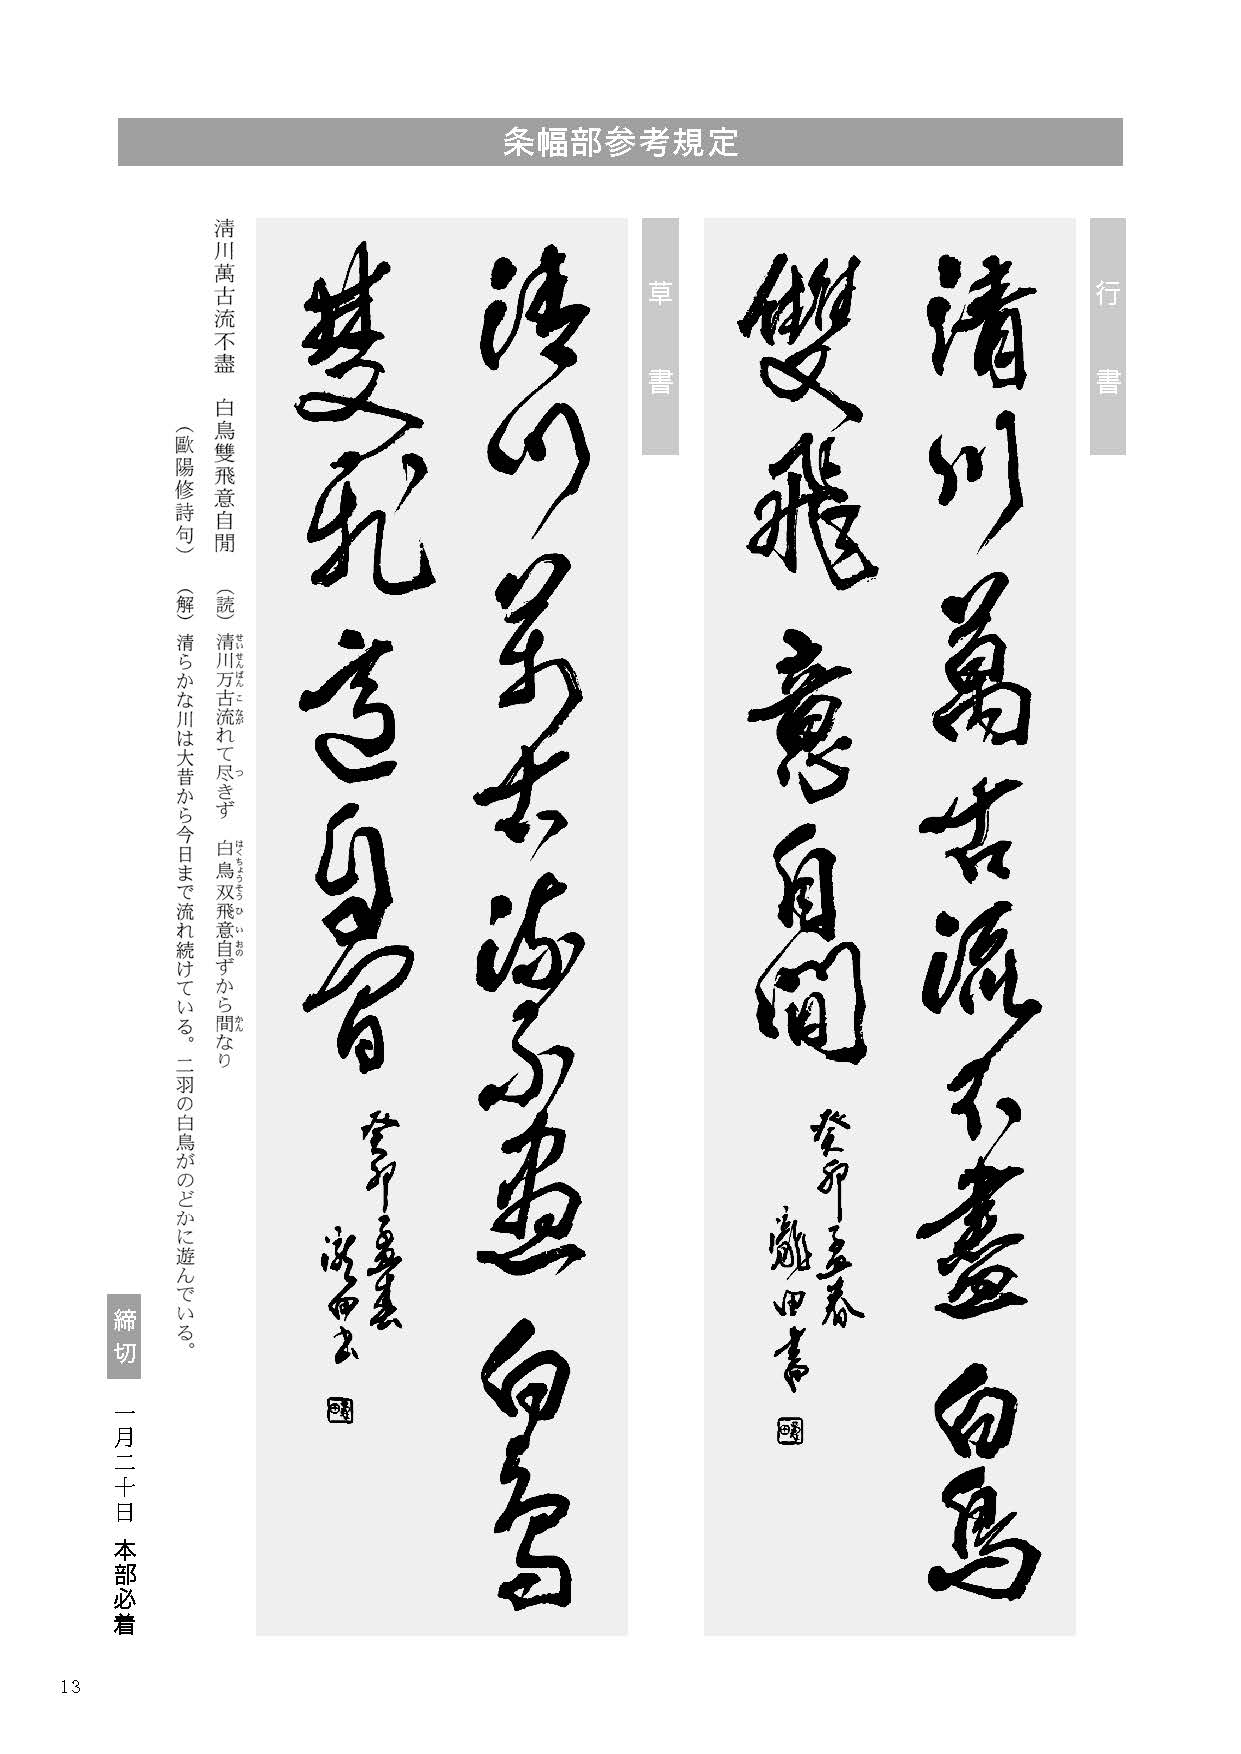 条幅部参考規定
行書
清川萬古流不盡白鳥
雙飛意自閒
癸卯孟春
龝田書
草書
清川萬古流不盡白鳥
雙飛意自閒
癸卯孟春
龝田書
淸川萬古流不盡　白鳥雙飛意自閒　（読）清川万古流れて尽きず　白鳥双飛意自ずから間なり
せいせんばんこなが　つ　はくちょうそうひいおの　かん
（歐陽修詩句）　（解）清らかな川は大昔から今日まで流れ続けている。二羽の白鳥がのどかに遊んでいる。
締切　一月二十日　本部必着
13